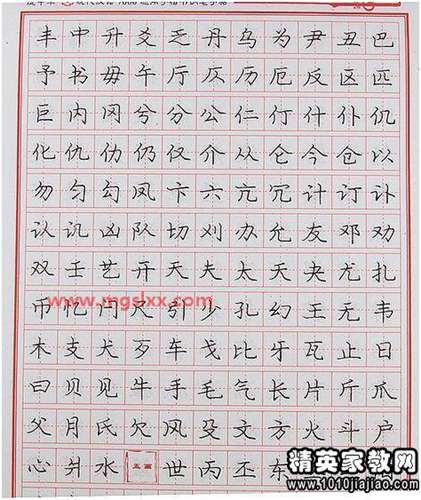 丰中升爻乏丹乌为尹丑巴
予书毋午厅仄历厄反区匹
巨内冈兮分公仁仃什仆仉
化仇仂仍仅介从仑今仓以
勿匀勾凤卞六亢冗计订讣
认讥凶队切刈办允友邓劝
双壬艺开天夫太夭夬尤扎
www.mgslxx.com
币忆闩尺引少孔幻王无韦
木支犬歹车戈比牙瓦止日
曰贝见牛手毛气长片斤爪
父月氏欠风殳文方火斗户
心爿水 五画 世丙丕东
精英家教网
www.1010jiajiao.com